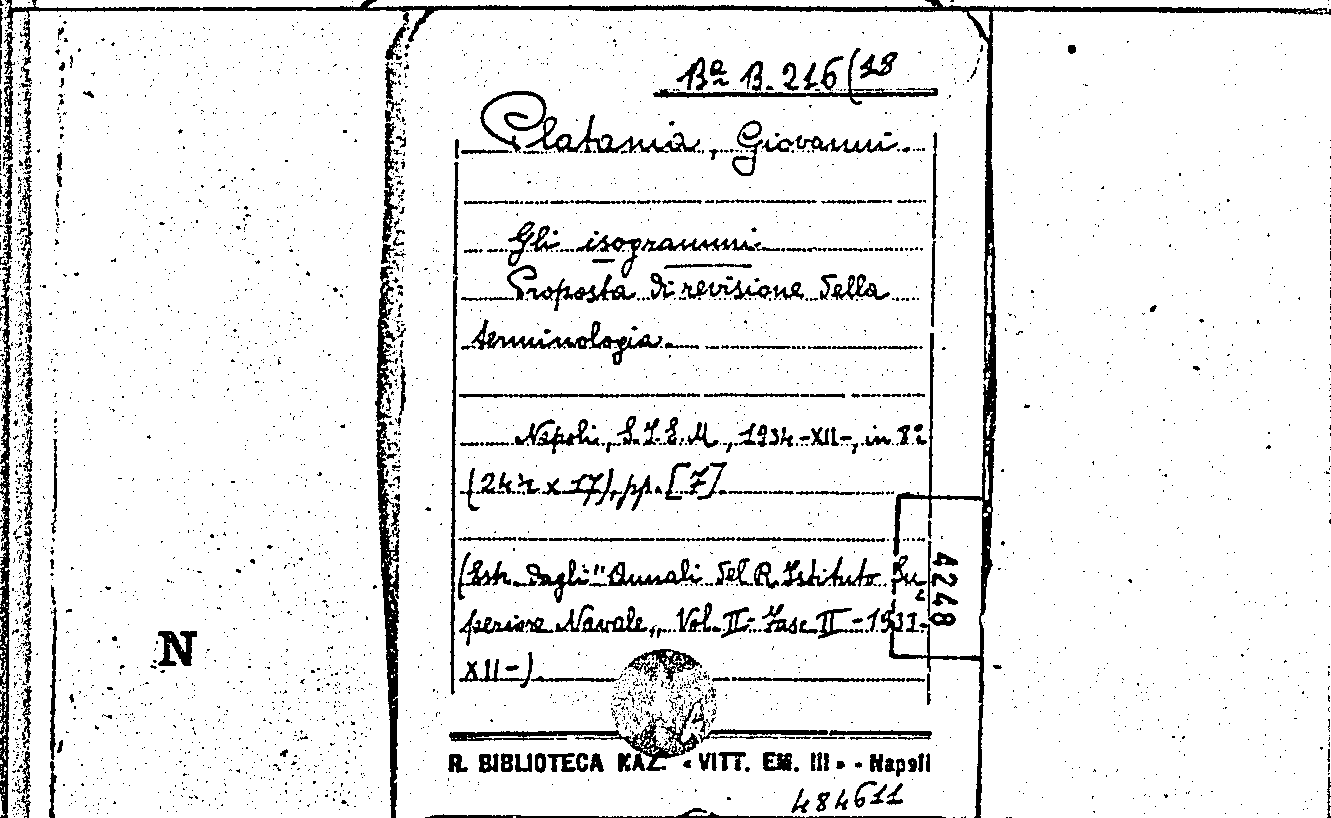 Bª B. 216(18
Platania, Giovanni.
Gli isogrammi
Proposta di revisione della
terminologia.
Napoli, S.I.E.M, 1934-XII-, in 8º
(24½ x 17), pp. [7].
(Estr. dagli "Annali del R. Istituto Su-
periore Navale„ Vol. II- Fasc II -1933-
XII-)
4248
N
R. BIBLIOTECA NAZ. «VITT. EM. III» - Napoli
484611